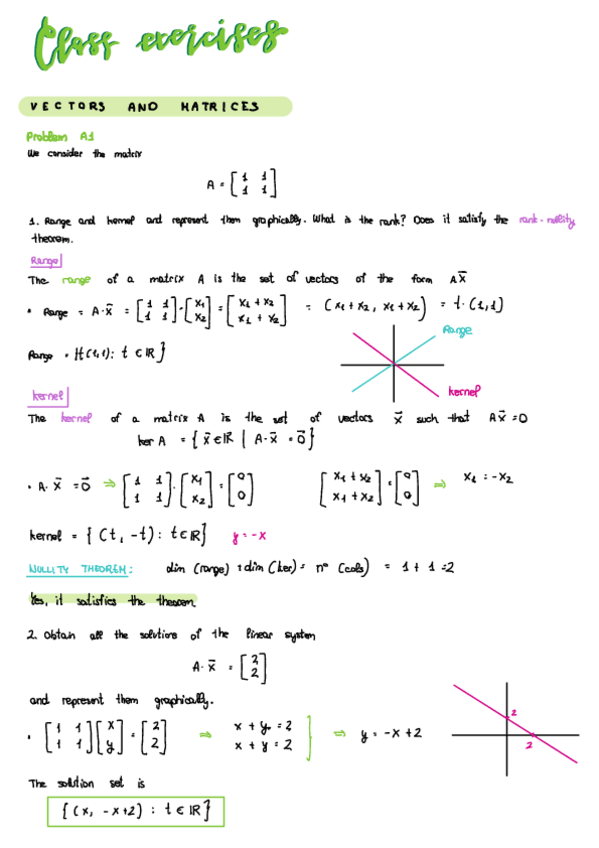 Class exercises
VECTORS AND MATRICES
Problem A1
We consider the matrix
A = [1 1; 1 1]
1. Range and kernel and represent them graphically. What is the rank? Does it satisfy the rank-nullity
theorem.
Range
The range of a matrix A is the set of vectors of the form A x⃗
• Range = A·x⃗ = [1 1; 1 1]·[x1; x2] = [x1 + x2; x1 + x2] = (x1 + x2, x1 + x2) = t·(1,1)
Range
Range = {t(1,1): t ∈ ℝ}
kernel
kernel
The kernel of a matrix A is the set of vectors x⃗ such that A x⃗ = 0
ker A = { x⃗ ∈ ℝ | A·x⃗ = 0⃗ }
• A·x⃗ = 0⃗ ⇒ [1 1; 1 1]·[x1; x2] = [0; 0] [x1 + x2; x1 + x2] = [0; 0] ⇒ x1 = -x2
kernel = { (t, -t): t ∈ ℝ } y = -x
NULLITY THEOREM: dim (range) + dim (ker) = nº (cols) = 1 + 1 = 2
Yes, it satisfies the theorem.
2. Obtain all the solutions of the linear system
A·x⃗ = [2; 2]
and represent them graphically.
2
• [1 1; 1 1][x; y] = [2; 2] ⇒ x + y = 2 x + y = 2 } ⇒ y = -x + 2
2
The solution set is
{ (x, -x+2) : t ∈ ℝ }